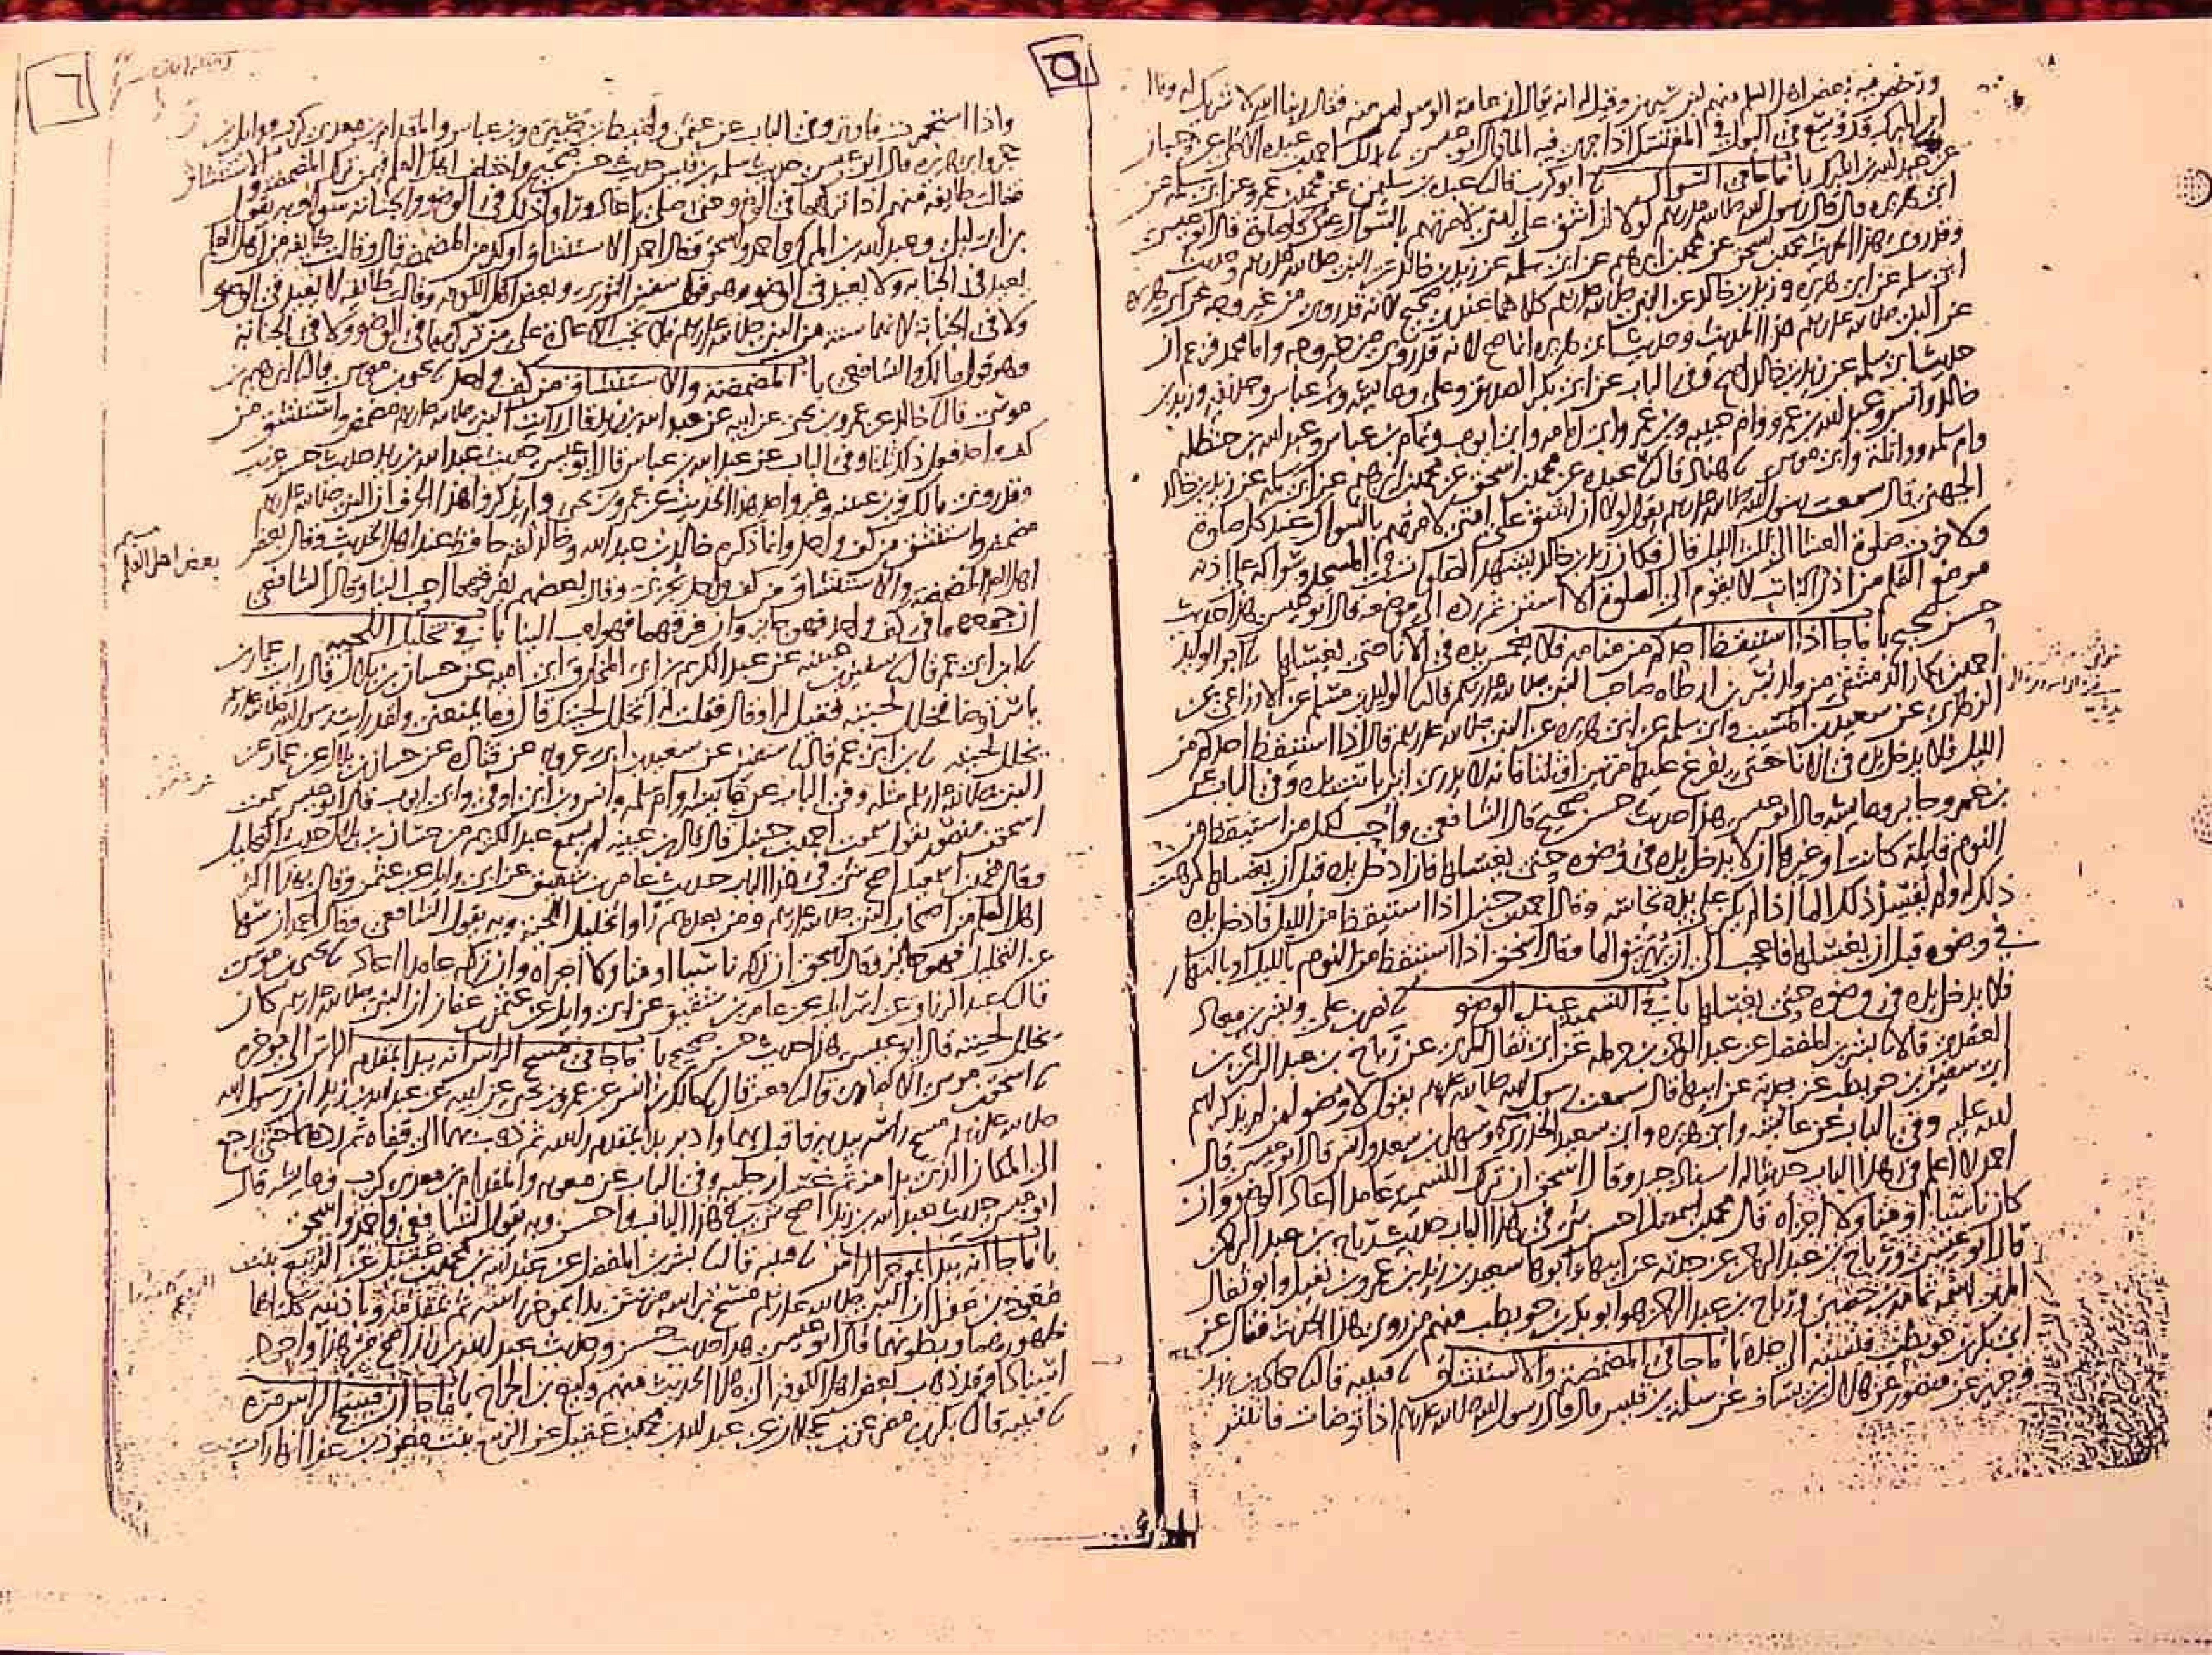 ٥
ورخص فيه بعض اهل العلم منهم ابن سيرين وقيل له انه يقال ان عامة الوسواس منه فقال ربنا الله لا شريك له وقال
ابن المبارك قد وسع في البول في المغتسل اذا جرى فيه الما قال ابو عيسى بذلك احمد بن عبده الاملي عن حبان
عن عبد الله بن المبارك باب ما جا في السواك ابو كريب قال عبده بن سليمن عن محمد بن عمرو عن ابي سلمه عن
ابي هريره قال قال رسول الله صلى الله عليه وسلم لولا ان اشق على امتي لامرتهم بالسواك عند كل صلوة قال ابو عيسى
وقد روى هذا الحديث محمد بن اسحق عن محمد بن ابرهيم عن ابي سلمه عن زيد بن خالد عن النبي صلى الله عليه وسلم وحديث
ابي سلمه عن ابي هريره وزيد بن خالد عن النبي صلى الله عليه وسلم كلاهما عندي صحيح لانه قد روي من غير وجه عن ابي هريره
عن النبي صلى الله عليه وسلم هذا الحديث وحديث ابي هريره انما صح لانه قد روي من غير وجه واما محمد فزعم ان
حديث ابي سلمه عن زيد بن خالد اصح وفي الباب عن ابي بكر الصديق وعلي وعايشه وابن عباس وحذيفه وزيد بن
خالد وانس وعبد الله بن عمرو وام حبيبه وابن عمر وابي امامه وابي ايوب وتمام بن عباس وعبد الله بن حنظله
وام سلمه وواثلة وابي موسى هناد قال عبده عن محمد بن اسحق عن محمد بن ابرهيم عن ابي سلمه عن زيد بن خالد
الجهني قال سمعت رسول الله صلى الله عليه وسلم يقول لولا ان اشق على امتي لامرتهم بالسواك عند كل صلوة
ولاخرت صلوة العشا الى ثلث الليل قال فكان زيد بن خالد يشهد الصلوات في المسجد وسواكه على اذنه
موضع القلم من اذن الكاتب لا يقوم الى الصلوة الا استن ثم رده الى موضعه قال ابو عيسى هذا حديث
حسن صحيح باب ما جا اذا استيقظ احدكم من منامه فلا يغمس يده في الانا حتى يغسلها ابو الوليد
احمد بن بكار الدمشقي من ولد بسر بن ارطاه صاحب النبي صلى الله عليه وسلم قال الوليد بن مسلم عن الاوزاعي عن
الزهري عن سعيد بن المسيب وابي سلمه عن ابي هريره عن النبي صلى الله عليه وسلم قال اذا استيقظ احدكم من
الليل فلا يدخل يده في الانا حتى يفرغ عليها مرتين او ثلثا فانه لا يدري اين باتت يده وفي الباب عن
بن عمر وجابر وعايشه قال ابو عيسى هذا حديث حسن صحيح قال الشافعي واحب لكل من استيقظ من
النوم قايلة كانت او غيرها ان لا يدخل يده في وضوه حتى يغسلها فان ادخل يده قبل ان يغسلها كرهت
ذلك له ولم يفسد ذلك الما اذا لم يكن على يده نجاسه وقال احمد بن حنبل اذا استيقظ من الليل فادخل يده
في وضوه قبل ان يغسلها فاعجب الي ان يهريق الما وقال اسحق اذا استيقظ من النوم بالليل او بالنهار
فلا يدخل يده في وضوه حتى يغسلها باب في التسميه عند الوضو نصر بن علي وبشر بن معاذ
العقدي قالا بشر بن المفضل عن عبد الرحمن بن حرمله عن ابي ثفال المري عن رباح بن عبد الرحمن بن
ابي سفين بن حويطب عن جدته عن ابيها قال سمعت رسول الله صلى الله عليه وسلم يقول لا وضو لمن لم يذكر اسم
الله عليه وفي الباب عن عايشه وابي هريره وابي سعيد الخدري وسهل بن سعد وانس قال ابو عيسى قال
احمد لا اعلم في هذا الباب حديثا له اسناد جيد وقال اسحق ان ترك التسميه عامدا اعاد الوضو وان
كان ناسيا او متاولا اجزاه قال محمد بن اسمعيل احسن شي في هذا الباب حديث رباح بن عبد الرحمن
قال ابو عيسى ورباح بن عبد الرحمن عن جدته عن ابيها وابوها سعيد بن زيد بن عمرو بن نفيل وابو ثفال
المري اسمه ثمامه بن حصين ورباح بن عبد الرحمن هو ابو بكر بن حويطب منهم من روى هذا الحديث فقال عن
ابي بكر بن حويطب فنسبه الى جده باب ما جا في المضمضة والاستنشاق قتيبه قال حماد بن زيد
وجرير عن منصور عن هلال بن يساف عن سلمه بن قيس قال قال رسول الله صلى الله عليه وسلم اذا توضات فانتثر
٦
واذا استجمرت فاوتر وفي الباب عن عثمن ولقيط بن صبره وبن عباس والمقدام بن معدي كرب ووايل بن
حجر وابي هريره قال ابو عيسى حديث سلمه بن قيس حديث حسن صحيح واختلف اهل العلم فيمن ترك المضمضه والاستنشاق
فقالت طايفه منهم اذا تركهما في الوضو حتى صلى اعاد وراوا ذلك في الوضو والجنابه سوا وبه يقول
بن ابي ليلى وعبد الله بن المبارك واحمد واسحق وقال احمد الاستنشاق اوكد من المضمضه قال وقالت طايفه من اهل العلم
يعيد في الجنابه ولا يعيد في الوضو وهو قول سفين الثوري وبعض اهل الكوفه وقالت طايفه لا يعيد في الوضو
ولا في الجنابه لانهما سنه من النبي صلى الله عليه وسلم فلا تجب الاعاده على من تركهما في الوضو ولا في الجنابه
وهو قول مالك والشافعي باب المضمضه والاستنشاق من كف واحد يحيى بن موسى قال ابرهيم بن
موسى قال خالد عن عمرو بن يحيى عن ابيه عن عبد الله بن زيد قال رايت النبي صلى الله عليه وسلم مضمض واستنشق من
كف واحد فعل ذلك ثلثا وفي الباب عن عبد الله بن عباس قال ابو عيسى حديث عبد الله بن زيد حديث حسن غريب
وقد روى مالك وبن عيينه وغير واحد هذا الحديث عن عمرو بن يحيى ولم يذكروا هذا الحرف ان النبي صلى الله عليه وسلم
مضمض واستنشق من كف واحد وانما ذكره خالد بن عبد الله وخالد ثقه حافظ عند اهل الحديث وقال بعض
اهل العلم المضمضه والاستنشاق من كف واحد يجزي وقال بعضهم يفرقهما احب الينا وقال الشافعي
ان جمعهما في كف واحد فهو جايز وان فرقهما فهو احب الينا باب في تخليل اللحيه
ابن ابي عمر قال سفين بن عيينه عن عبد الكريم بن ابي المخارق ابي اميه عن حسان بن بلال قال رايت عمار بن
ياسر توضا فخلل لحيته فقيل له او قال فقلت له اتخلل لحيتك قال وما يمنعني ولقد رايت رسول الله صلى الله عليه وسلم
يخلل لحيته بن ابي عمر قال سفين عن سعيد بن ابي عروبه عن قتاده عن حسان بن بلال عن عمار عن
النبي صلى الله عليه وسلم مثله وفي الباب عن عايشه وام سلمه وانس وبن ابي اوفى وابي ايوب قال ابو عيسى سمعت
اسحق بن منصور يقول سمعت احمد بن حنبل قال قال بن عيينه لم يسمع عبد الكريم من حسان بن بلال حديث التخليل
وقال محمد بن اسمعيل اصح شي في هذا الباب حديث عامر بن شقيق عن ابي وايل عن عثمن وقال بهذا اكثر
اهل العلم من اصحاب النبي صلى الله عليه وسلم ومن بعدهم راوا تخليل اللحيه وبه يقول الشافعي وقال احمد ان سها
عن التخليل فهو جايز وقال اسحق ان تركه ناسيا او متاولا اجزاه وان تركه عامدا اعاد يحيى بن موسى
قال عبد الرزاق عن اسرايل عن عامر بن شقيق عن ابي وايل عن عثمن بن عفان ان النبي صلى الله عليه وسلم كان
يخلل لحيته قال ابو عيسى هذا حديث حسن صحيح باب ما جا في مسح الراس انه يبدا بمقدم الراس الى موخره
اسحق بن موسى الانصاري قال معن قال مالك بن انس عن عمرو بن يحيى عن ابيه عن عبد الله بن زيد ان رسول الله
صلى الله عليه وسلم مسح راسه بيديه فاقبل بهما وادبر بدا بمقدم راسه ثم ذهب بهما الى قفاه ثم ردهما حتى رجع
الى المكان الذي بدا منه ثم غسل رجليه وفي الباب عن معويه والمقدام بن معدي كرب وعايشه قال
ابو عيسى حديث عبد الله بن زيد اصح شي في هذا الباب واحسن وبه يقول الشافعي واحمد واسحق
باب ما جا انه يبدا بموخر الراس قتيبه قال بشر بن المفضل عن عبد الله بن محمد بن عقيل عن الربيع بنت
معوذ بن عفرا ان النبي صلى الله عليه وسلم مسح براسه مرتين بدا بموخر راسه ثم بمقدمه وباذنيه كلتاهما
ظهورهما وبطونهما قال ابو عيسى هذا حديث حسن وحديث عبد الله بن زيد اصح من هذا واجود
اسنادا وقد ذهب بعض اهل الكوفه الى هذا الحديث منهم وكيع بن الجراح باب ما جا ان مسح الراس مره
قتيبه قال بكر بن مضر عن بن عجلان عن عبد الله بن محمد بن عقيل عن الربيع بنت معوذ بن عفرا انها رات
بعض اهل العلم